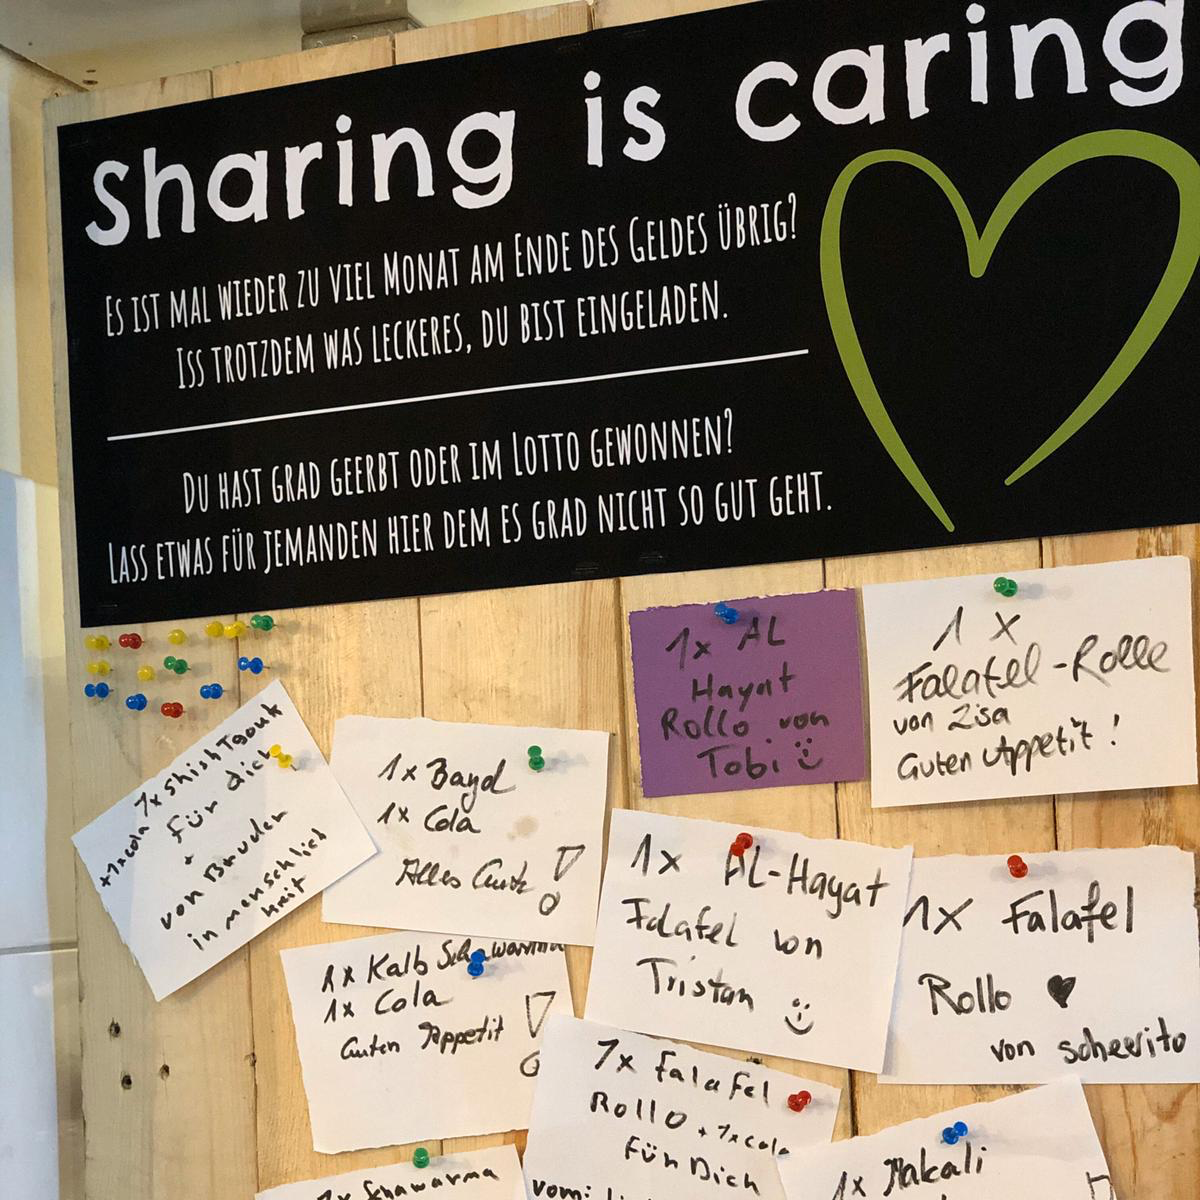 Sharing is caring
Es ist mal wieder zu viel Monat am Ende des Geldes übrig?
Iss trotzdem was leckeres, du bist eingeladen.
Du hast grad geerbt oder im Lotto gewonnen?
Lass etwas für jemanden hier dem es grad nicht so gut geht.
1x AL
Hayat
Rollo von
Tobi
1 x
Falafel-Rolle
von Lisa
Guten Appetit!
1x Shish Taouk
+1x cola
für dich
+
von Bruder
in menschlich
keit
1x Bagd
1x Cola
Alles Gute!
1x AL-Hayat
Falafel von
Tristan
1x Falafel
Rollo ♥
von scheerito
1x Kalb Schawarma
1x Cola
Guten Appetit!
1x Falafel
Rollo + 1x cola
Für Dich
vom:
1x Makali
1x Schawarma